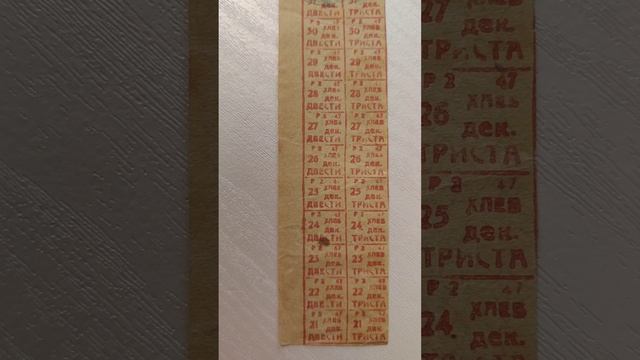 31 31
ДВЕСТИ ТРИСТА
Р 2 47 Р 2 47
30 хлеб 30 хлеб
дек. дек.
ДВЕСТИ ТРИСТА
Р 2 47 Р 2 47
29 хлеб 29 хлеб
дек. дек.
ДВЕСТИ ТРИСТА
Р 2 47 Р 2 47
28 хлеб 28 хлеб
дек. дек.
ДВЕСТИ ТРИСТА
Р 2 47 Р 2 47
27 хлеб 27 хлеб
дек. дек.
ДВЕСТИ ТРИСТА
Р 2 47 Р 2 47
26 хлеб 26 хлеб
дек. дек.
ДВЕСТИ ТРИСТА
Р 2 47 Р 2 47
25 хлеб 25 хлеб
дек. дек.
ДВЕСТИ ТРИСТА
Р 2 47 Р 2 47
24 хлеб 24 хлеб
дек. дек.
ДВЕСТИ ТРИСТА
Р 2 47 Р 2 47
23 хлеб 23 хлеб
дек. дек.
ДВЕСТИ ТРИСТА
Р 2 47 Р 2 47
22 хлеб 22 хлеб
дек. дек.
ДВЕСТИ ТРИСТА
Р 2 47 Р 2 47
21 хлеб 21 хлеб
дек. дек.
ДВЕСТИ ТРИСТА
27
ТРИСТА
Р 2 47
26 хлеб
дек.
ТРИСТА
Р 2 47
25 хлеб
дек.
ТРИСТА
Р 2 47
24 хлеб
дек.